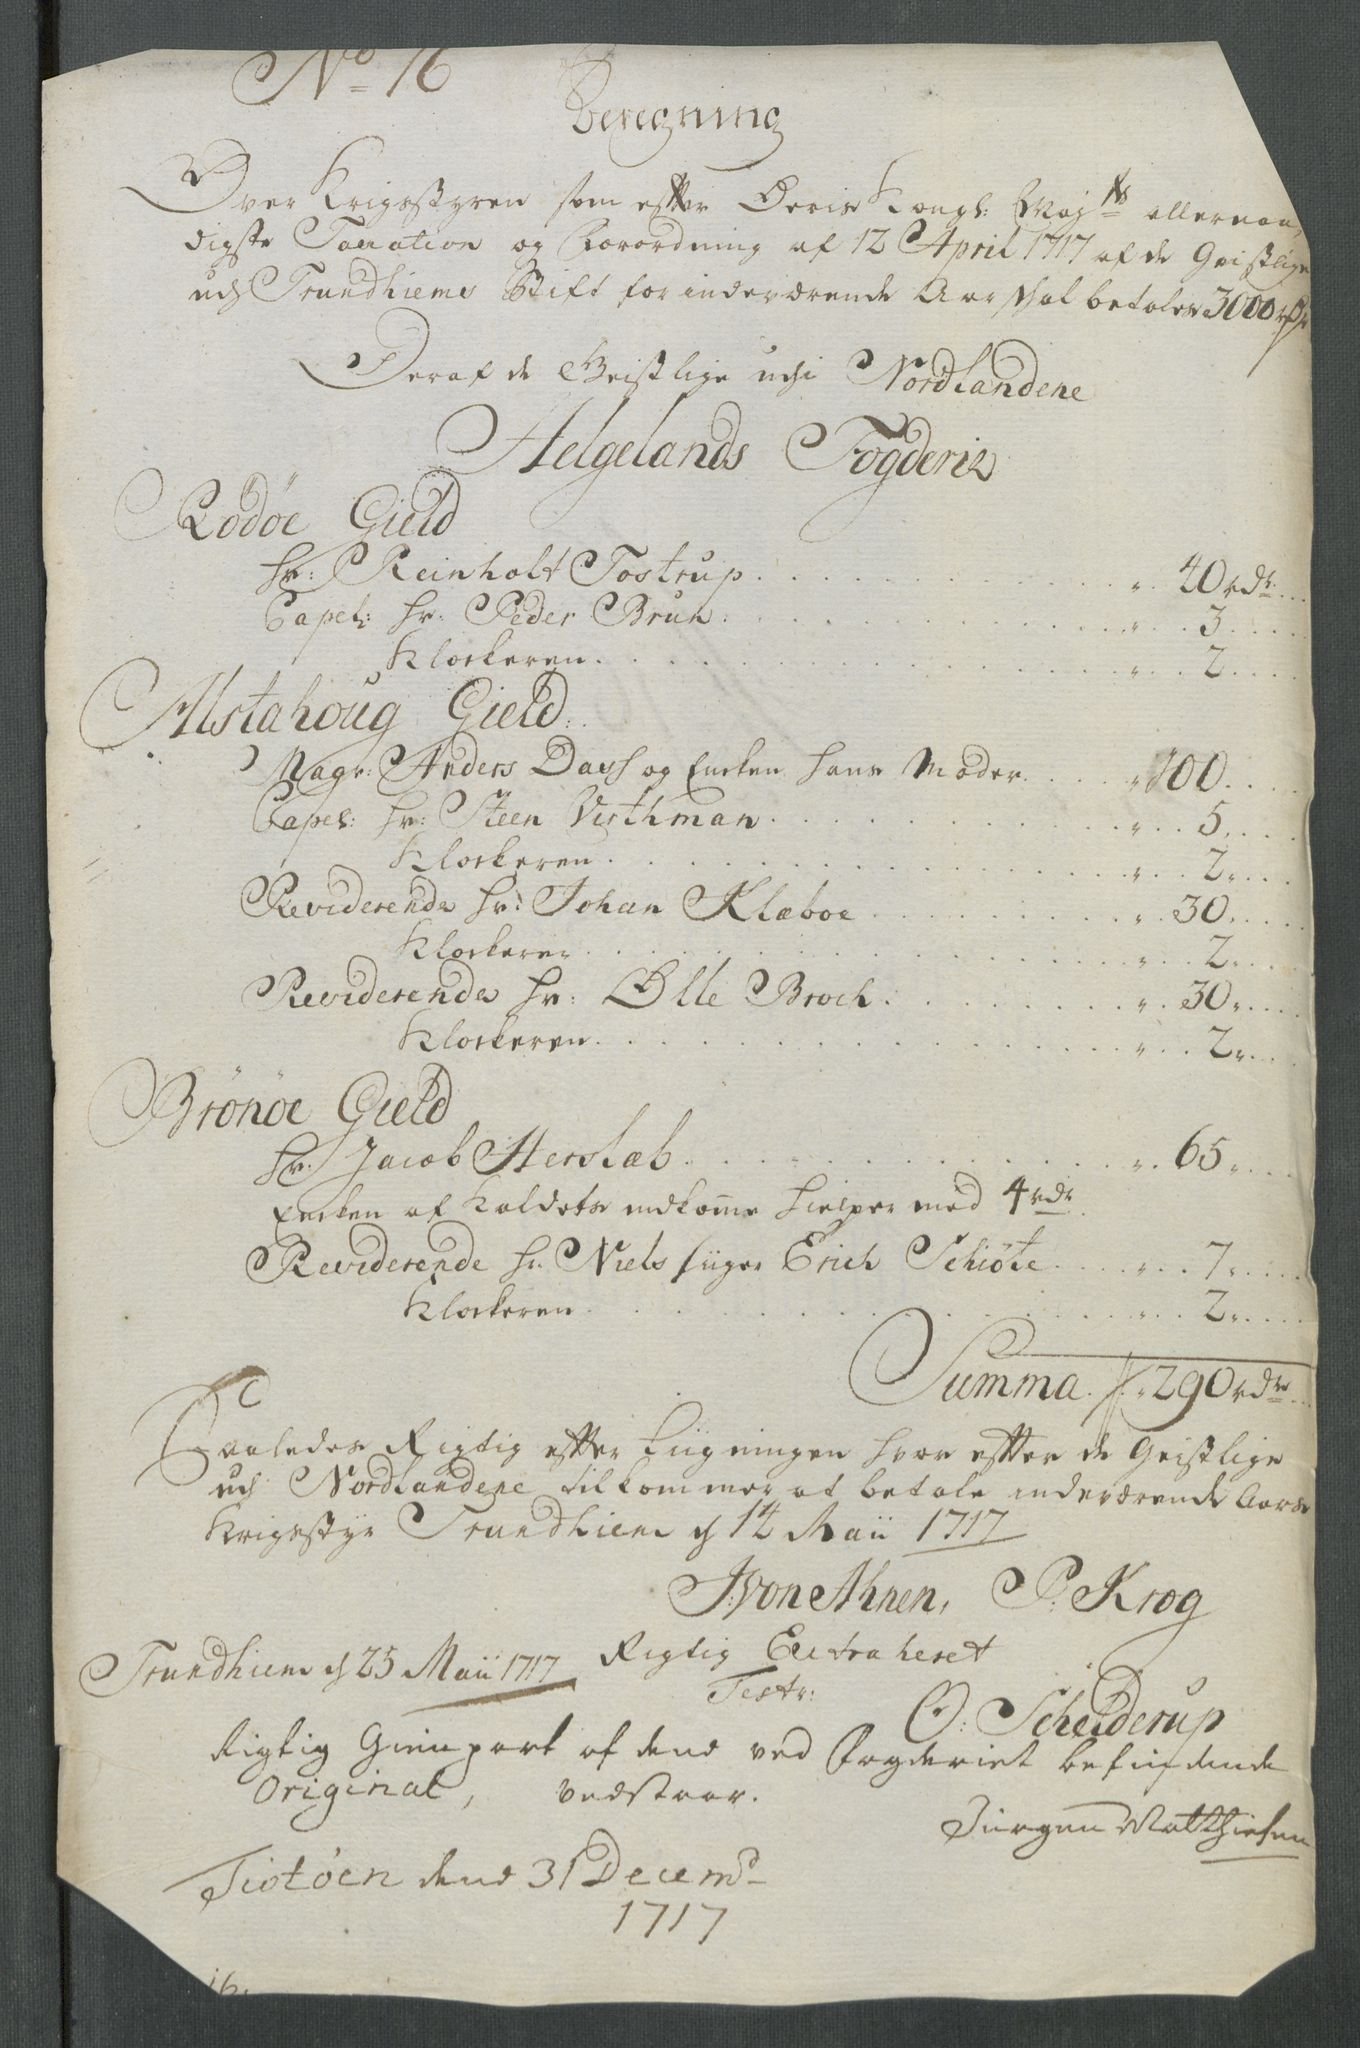 No 16
Beregning
Over Krigsstyren som efter Deris Kongl: Maj:ts allernaa,
digste Taxation og Forordning af 12 April 1717 af de Geistlige
udj Trundhiems Stift for indeværende Aar skal betales 3000 rdr
Deraf de Geistlige udi Nordlandene
Helgelands Fogderie
Rodøe Gield
Hr: Reinholt Tostrup . . . „ . 40 rdr.
Capel: Hr: Peder Bruh . . . „ . . 3
Klockeren . . . „ . . 2
Alstahoug Gield:
Magr: Anders Dass og Encken hans Moder . . . „ 100
Capel: Hr: Steen Virthman . . . „ . . 5
Klockeren . . . „ . . 2
Reviderende Hr: Johan Klæboe . . . „ . 30
Klockeren . . . „ . . 2
Reviderende Hr: Olle Broch . . . „ . 30
Klockeren . . . „ . . 2
Brönöe Gield
Hr. Jacob Herslab . . . „ . 65
Encken af Kaldets indkomme hielper med 4 rdr
Reviderende Hr. Niels siiger Erich Schiöte . . . „ . . 7
Klockeren . . . „ . . 2
Summa . „ 290 rdr
Saaledes Rigtig efter Liigningen hvor efter de Geistlige
udj Nordlandene tilkommer at betale indeværende Aars
Krigsstyr Trundhiem d 14 Maii 1717
J: von Ahnen, P: Krog
Trundhiem d 25 Maii 1717 Rigtig Extraheret
Test: O: Schelderup
Rigtig Gienpart af dend ved Fogderiet befindende
Original, vedstaar.
Jürgen Matthiesen
Tiøtøen dend 31 Decemb
1717
16.